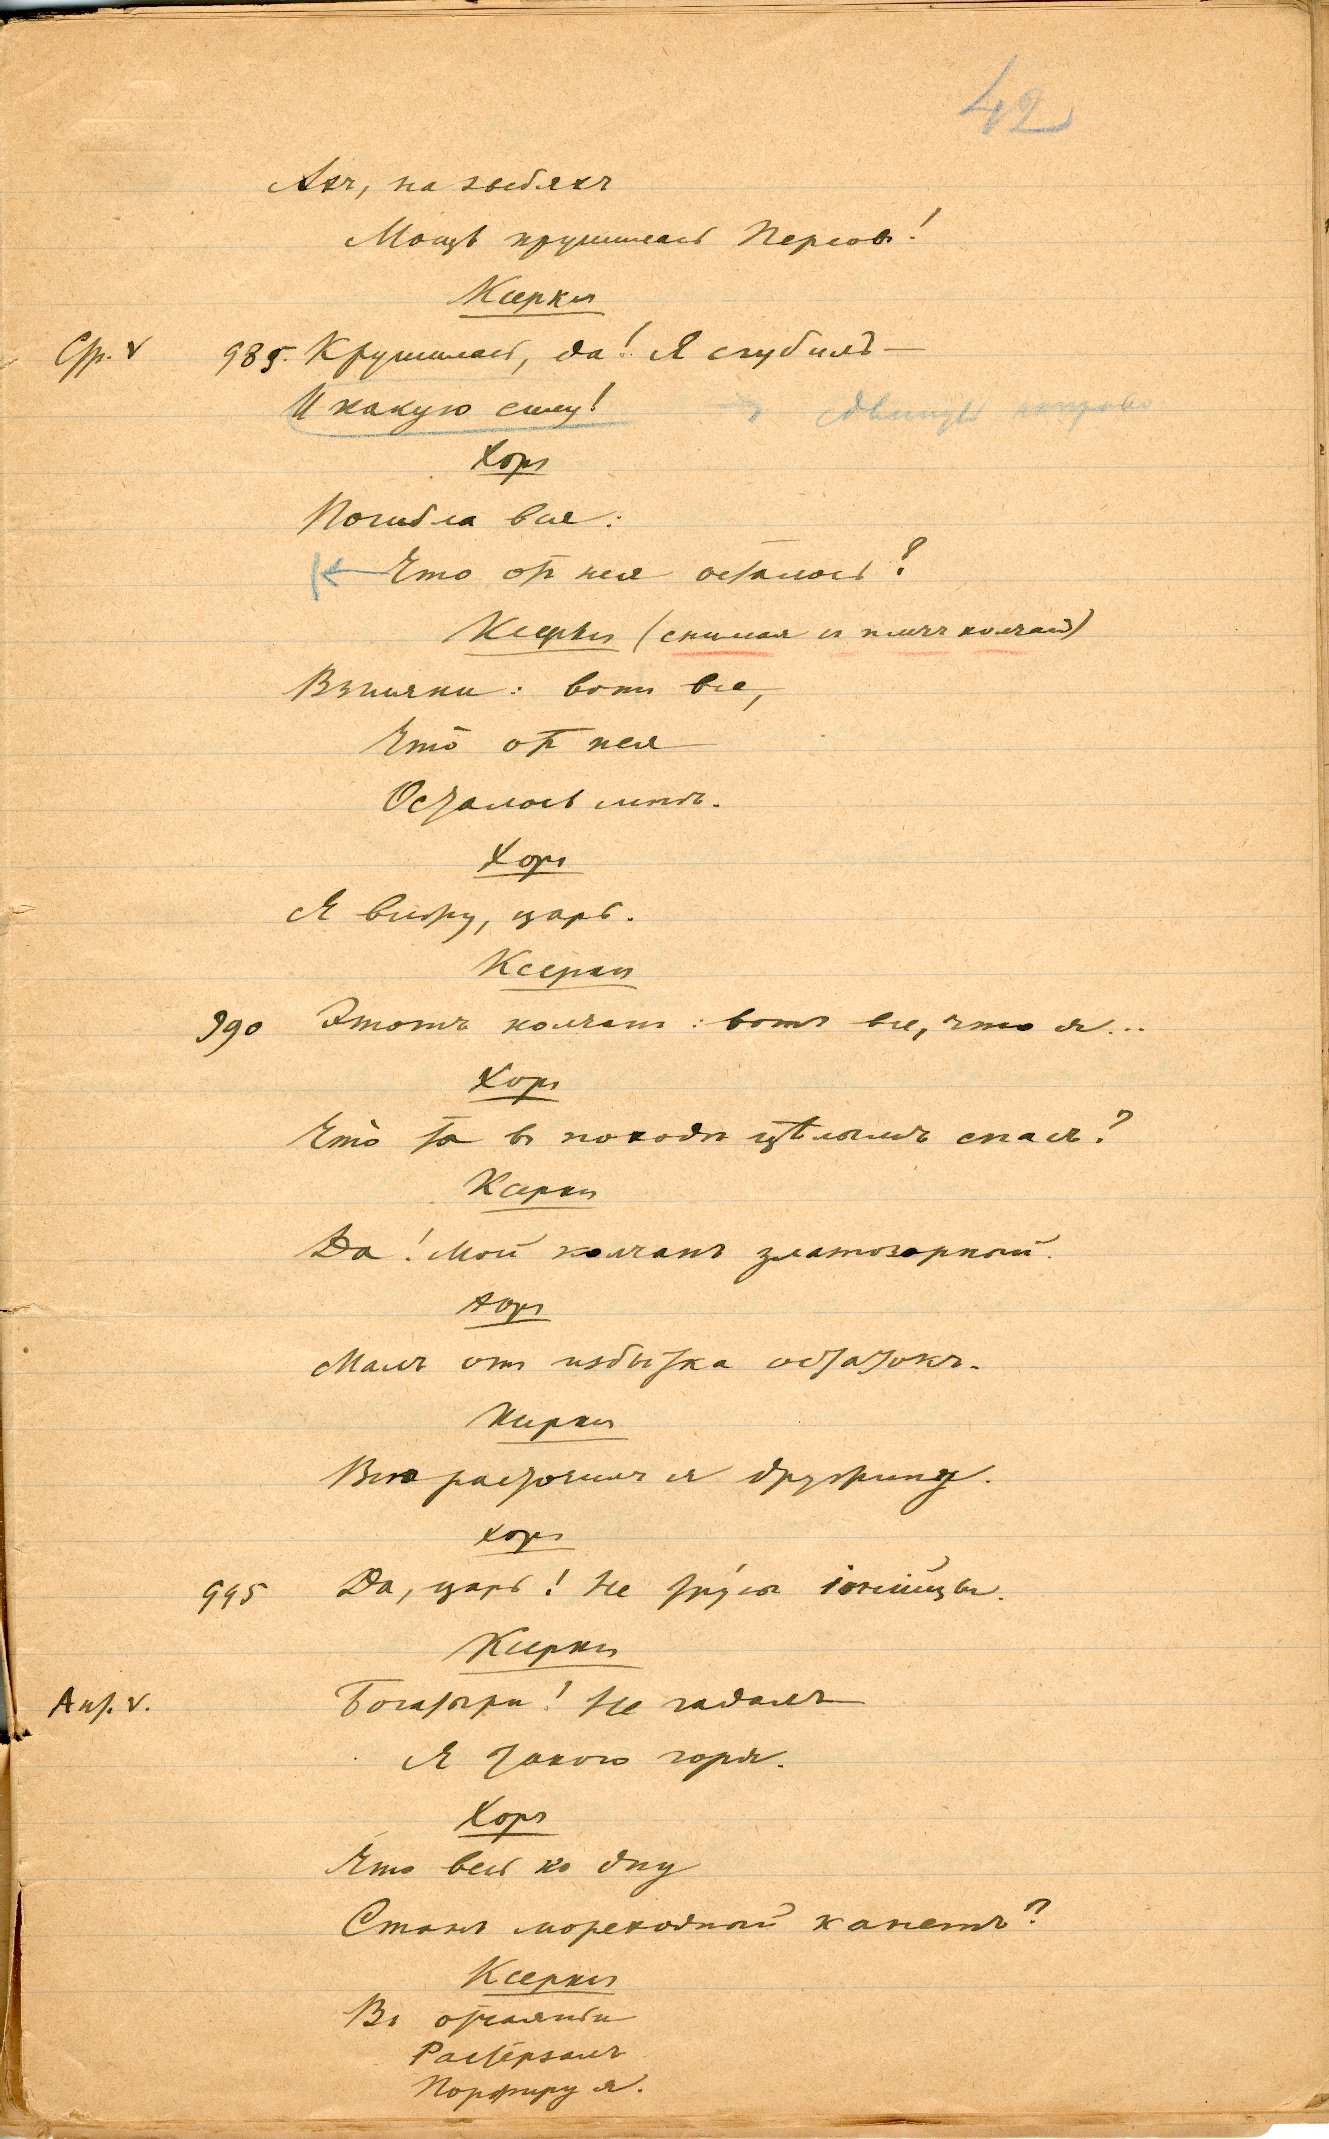 42
Ахъ, на зыбяхъ
Мощь крушилась Персовъ!
Ксерксъ
Стр. V 985. Крушилась, да! Я сгубилъ
И какую силу!
Хоръ
Погибла вся:
Что отъ нея осталось?
Ксерксъ (снимая съ плечъ колчанъ)
Взгляни: вотъ все,
Что отъ нея
Осталось мнѣ.
Хоръ
Я вижу, царь.
Ксерксъ
990 Этотъ колчанъ: вотъ все, что я...
Хоръ
Что ты въ походѣ цѣлымъ спасъ?
Ксерксъ
Да! Мой колчанъ златозарный.
Хоръ
Малъ отъ избытка остатокъ.
Ксерксъ
Всю расточилъ я дружину.
Хоръ
995 Да, царь! Не трусы іонійцы.
Ксерксъ
Ант. V. Богатыри! Не гадалъ
Я такого горя.
Хоръ
Что весь ко дну
Станъ мореходный канетъ?
Ксерксъ
Въ отчаяньи
Растерзалъ
Порфиру я.